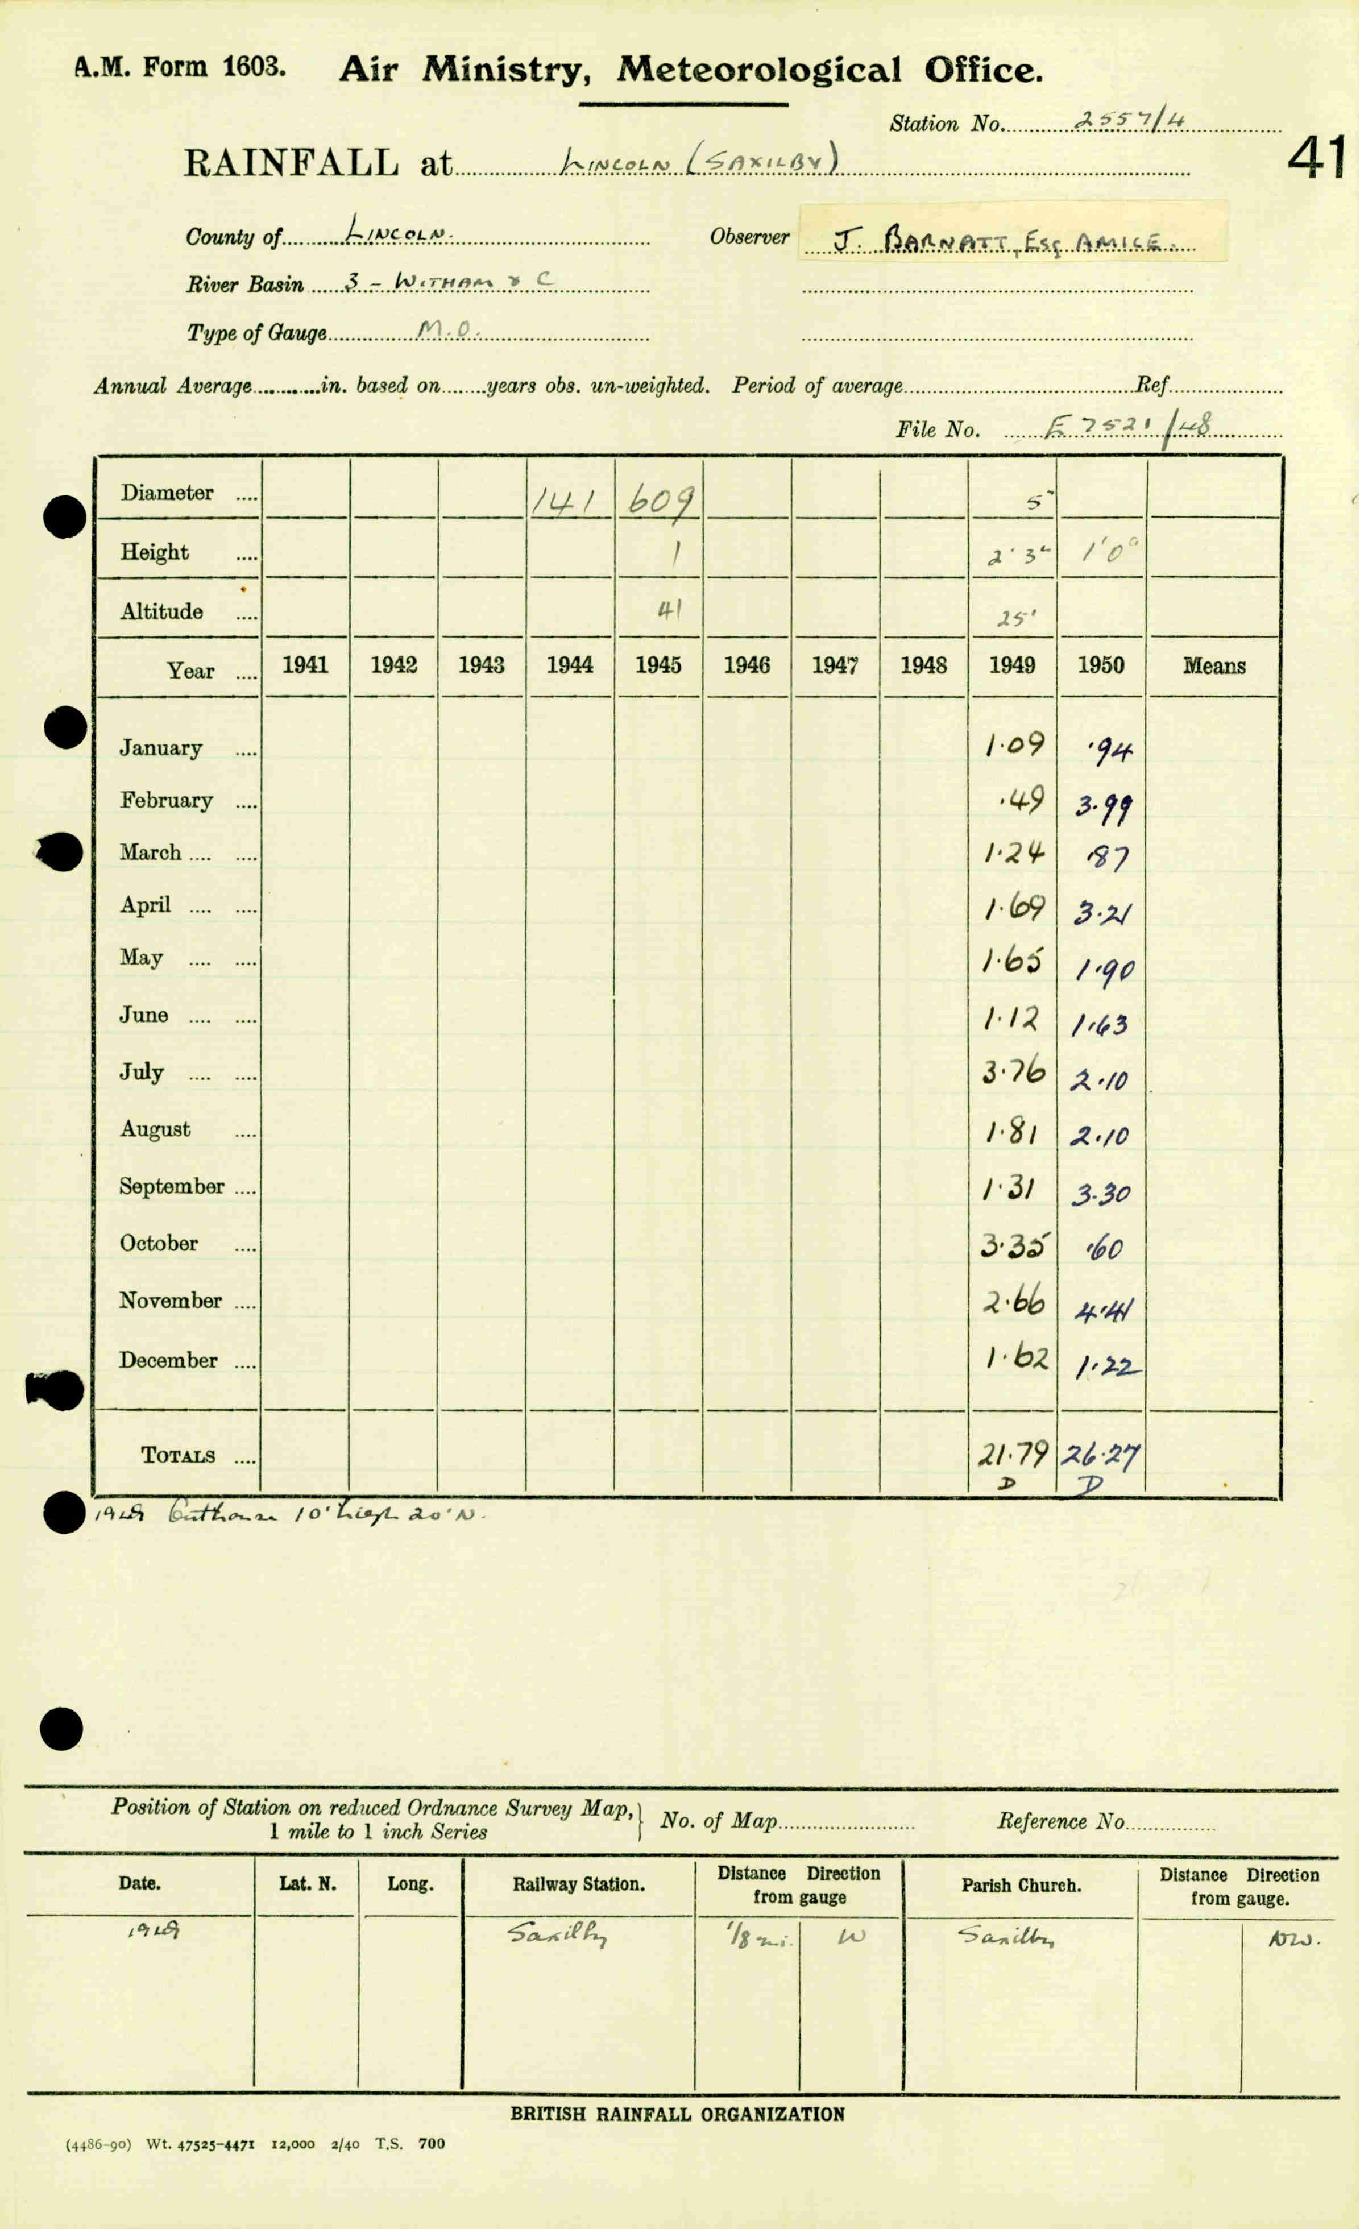 A.M. Form 1603. Air Ministry, Meteorological Office.
Station No. 2557/4
41
RAINFALL at LINCOLN (SAXILBY)
County of LINCOLN. Observer J. BARNATT, Esq AMICE.
River Basin 3 - WITHAM & C
Type of Gauge M.O.
Annual Average in. based on years obs. un-weighted. Period of average Ref.
File No. E 7521/48
Diameter .... 141 609 5"
Height .... 1 2' 3" 1'0"
Altitude .... 41 25'
Year .... 1941 1942 1943 1944 1945 1946 1947 1948 1949 1950 Means
January .... 1.09 .94
February .... .49 3.99
March .... .... 1.24 .87
April .... .... 1.69 3.21
May .... .... 1.65 1.90
June .... .... 1.12 1.63
July .... .... 3.76 2.10
August .... 1.81 2.10
September .... 1.31 3.30
October .... 3.35 .60
November .... 2.66 4.41
December .... 1.62 1.22
TOTALS .... 21.79 26.27
D D
Outhouse 10' high 20' N.
Position of Station on reduced Ordnance Survey Map, } No. of Map Reference No.
1 mile to 1 inch Series
Date. Lat. N. Long. Railway Station. Distance Direction from gauge Parish Church. Distance Direction from gauge.
Saxilby 1/8 mi. W Saxilby NW.
BRITISH RAINFALL ORGANIZATION
(4486-90) Wt. 47525-4471 12,000 2/40 T.S. 700